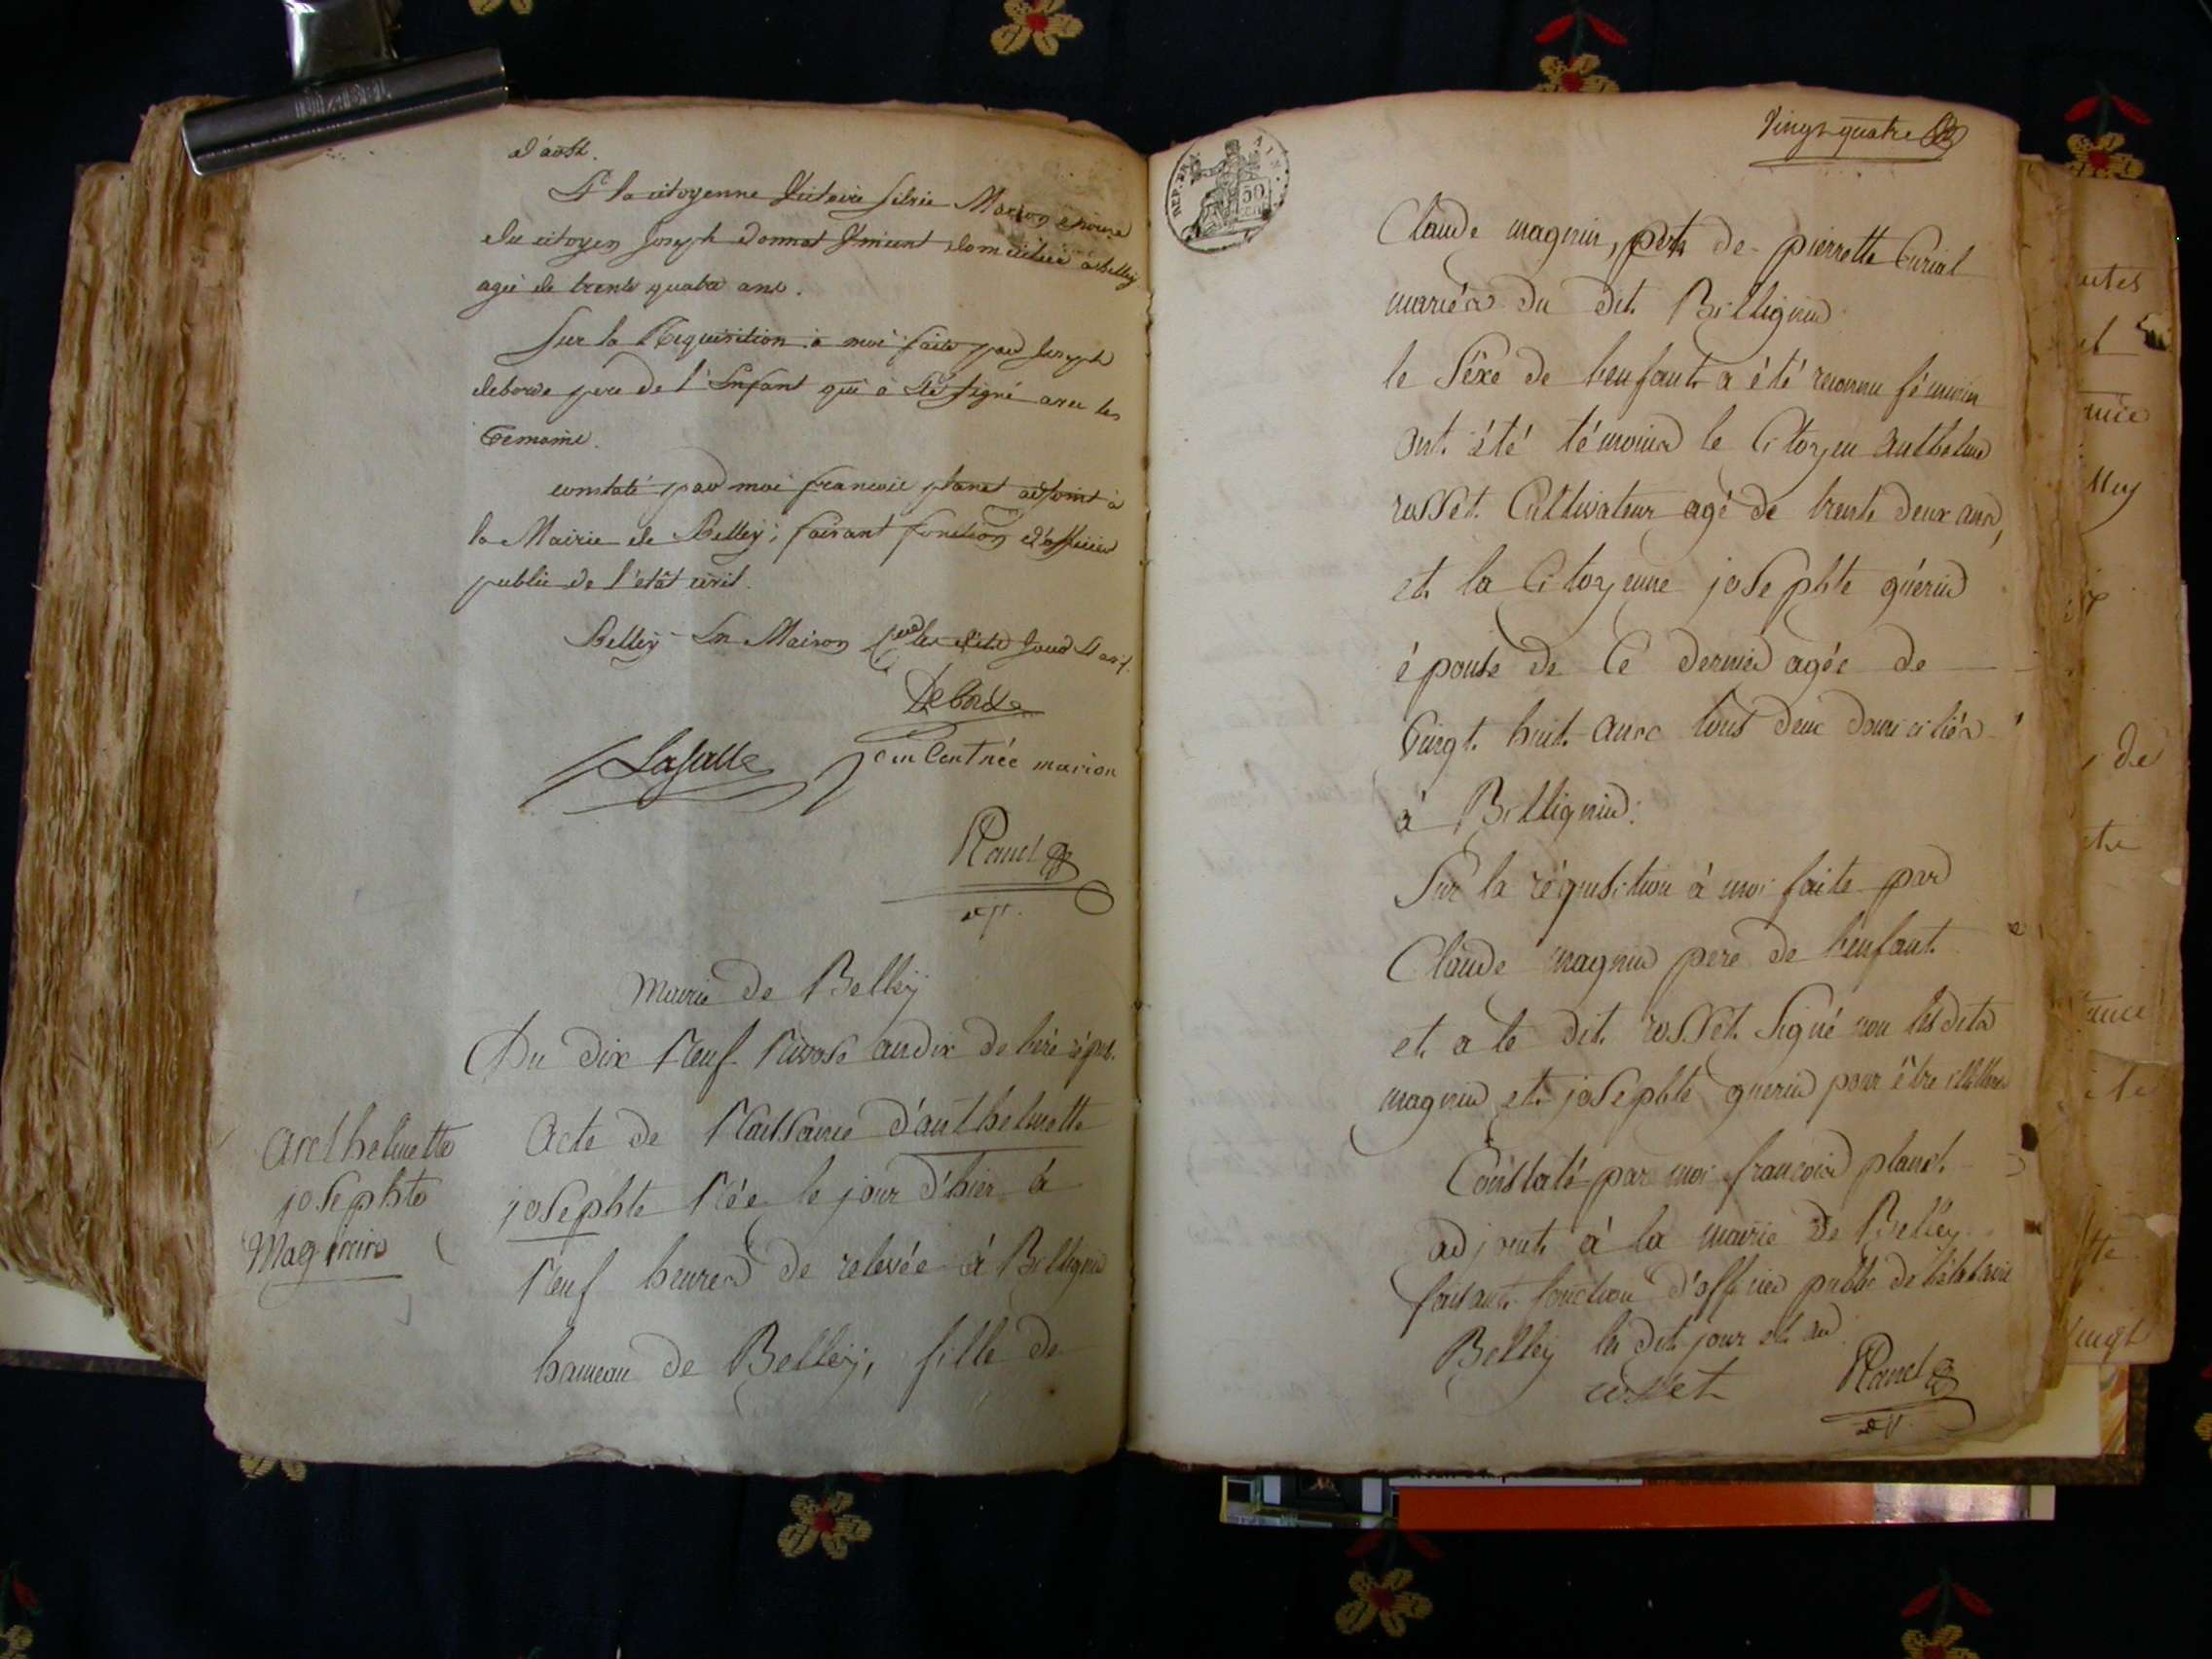 d'aost.
Et la citoyenne Victoire Silvie Marion epouse
du citoyen Joseph Donnat Vincent domiciliée a Belley
agée de trente quatre ans.
Sur la Requisition à moi faite par Joseph
deborde pere de l'Enfant qui a Eté signé avec les
temoins.
constaté par moi francois planet adjoint à
la Mairie de Belley; faisant fonction d'officier
public de l'etât civil.
Belley En Maison les dits Jour et an.
Deborde
Lasalle
vincent née marion
Planet
adj.
Mairie de Belley
Du dix Neuf Nivose an dix de l'ère répub.
anthelmette
josephte
Magnin
acte de Naissance d'anthelmette
josephte Née le jour d'hier à
Neuf heures de relevée à Billignin
hameau de Belley, fille de
REP. FRA.
50
Vingt quatre
Claude magnin, et de pierrette Curial
mariés du dit Billignin
le Séxe de l'enfant a été reconnu féminin
ont été témoins le Citoyen anthelme
rosset Cultivateur agé de trente deux ans,
et la Citoyenne josephte guérin
épouse de Ce dernier agée de
Vingt huit ans tous deux domiciliés
à Billignin.
Sur la réquisition à moi faite par
Claude magnin pere de l'enfant
et a le dit rosset Signé non lesdits
magnin et josephte guerin pour être illitérés
Constaté par moi francois planet
adjoint à la mairie de Belley
faisant fonction d'officier public de l'état civil
Belley les dit jour et an
rosset
Planet
adj.